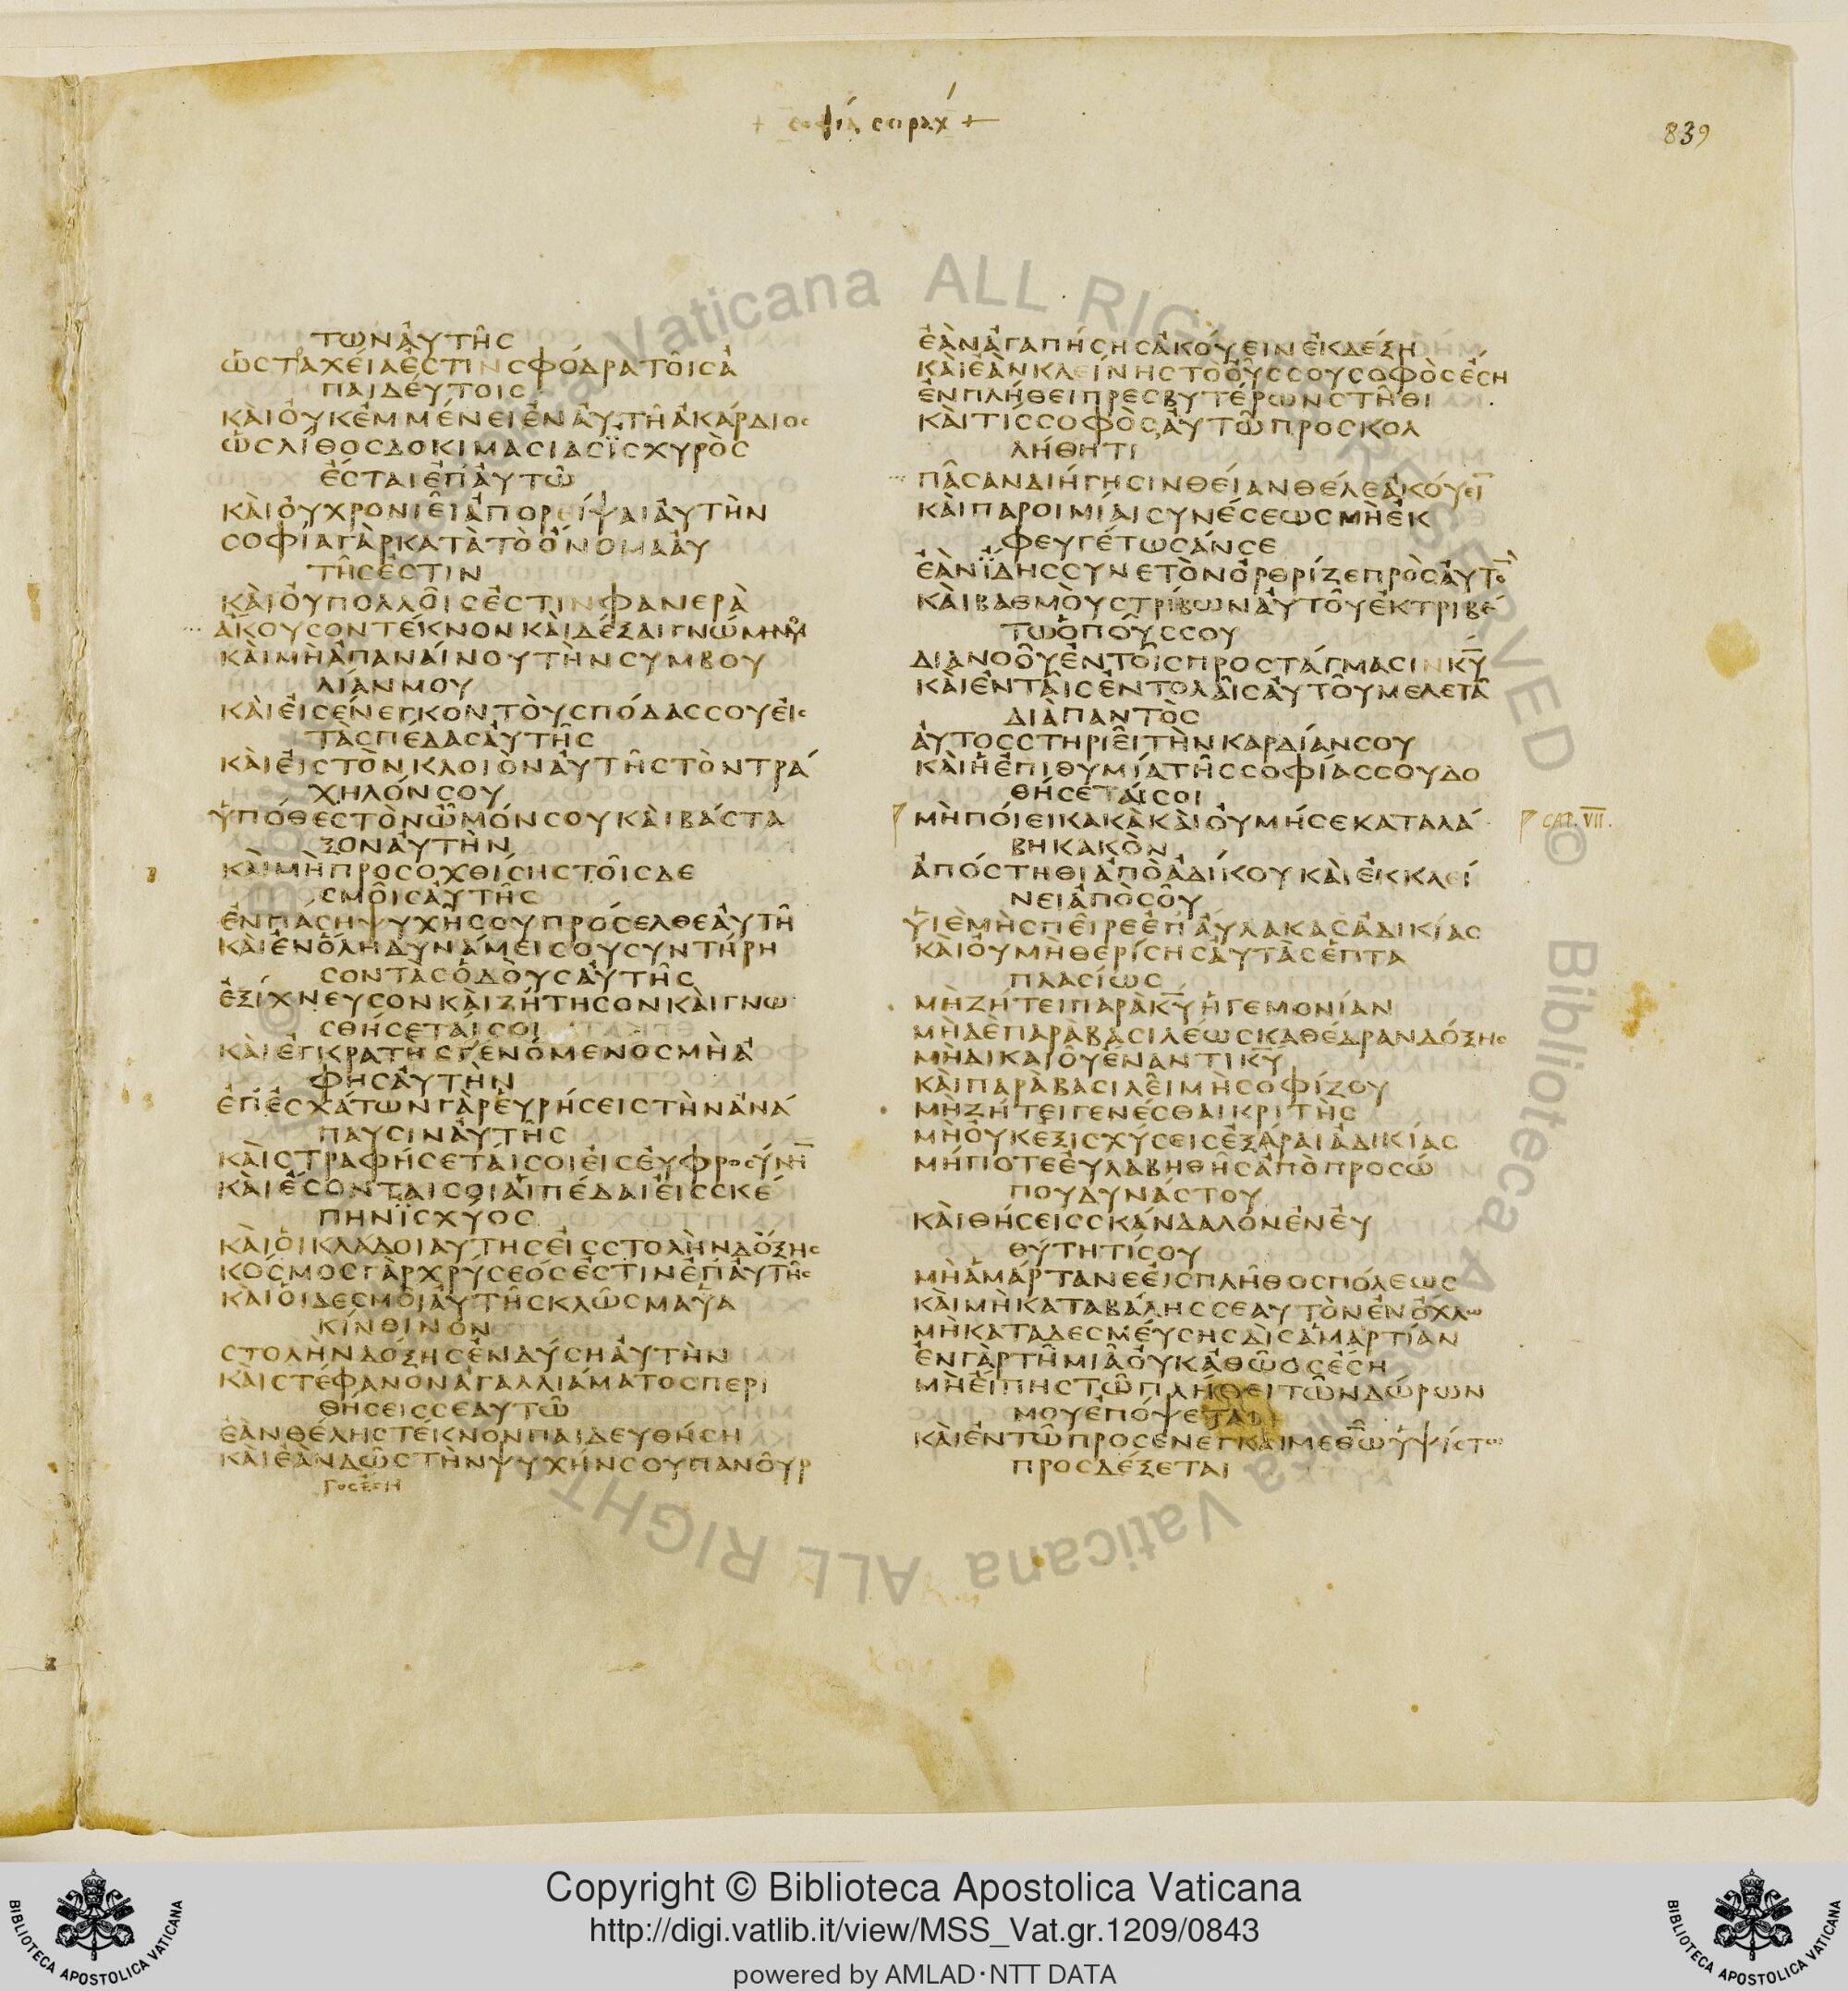 + σοφία σειραχ +
839
ΤΩΝΑΥΤΗΣ
ΩΣΤΑΧΕΙΑΕΣΤΙΝΣΦΟΔΡΑΤΟΙΣΑ
ΠΑΙΔΕΥΤΟΙΣ
ΚΑΙΟΥΚΕΜΜΕΝΕΙΕΝΑΥΤΗΑΚΑΡΔΙΟΣ
ΩΣΛΙΘΟΣΔΟΚΙΜΑΣΙΑΣΪΣΧΥΡΟΣ
ΕΣΤΑΙΕΠΑΥΤΩ
ΚΑΙΟΥΧΡΟΝΙΕΙΑΠΟΡΕΙΨΑΙΑΥΤΗΝ
ΣΟΦΙΑΓΑΡΚΑΤΑΤΟΟΝΟΜΑΑΥ
ΤΗΣΕΣΤΙΝ
ΚΑΙΟΥΠΟΛΛΟΙΣΕΣΤΙΝΦΑΝΕΡΑ
ΑΚΟΥΣΟΝΤΕΚΝΟΝΚΑΙΔΕΞΑΙΓΝΩΜΗΝΜΟΥ
ΚΑΙΜΗΑΠΑΝΑΙΝΟΥΤΗΝΣΥΜΒΟΥ
ΛΙΑΝΜΟΥ
ΚΑΙΕΙΣΕΝΕΓΚΟΝΤΟΥΣΠΟΔΑΣΣΟΥΕΙΣ
ΤΑΣΠΕΔΑΣΑΥΤΗΣ
ΚΑΙΕΙΣΤΟΝΚΛΟΙΟΝΑΥΤΗΣΤΟΝΤΡΑ
ΧΗΛΟΝΣΟΥ
ΥΠΟΘΕΣΤΟΝΩΜΟΝΣΟΥΚΑΙΒΑΣΤΑ
ΞΟΝΑΥΤΗΝ
ΚΑΙΜΗΠΡΟΣΟΧΘΙΣΗΣΤΟΙΣΔΕ
ΣΜΟΙΣΑΥΤΗΣ
ΕΝΠΑΣΗΨΥΧΗΣΟΥΠΡΟΣΕΛΘΕΑΥΤΗ
ΚΑΙΕΝΟΛΗΔΥΝΑΜΕΙΣΟΥΣΥΝΤΗΡΗ
ΣΟΝΤΑΣΟΔΟΥΣΑΥΤΗΣ
ΕΞΙΧΝΕΥΣΟΝΚΑΙΖΗΤΗΣΟΝΚΑΙΓΝΩ
ΣΘΗΣΕΤΑΙΣΟΙ
ΚΑΙΕΓΚΡΑΤΗΣΓΕΝΟΜΕΝΟΣΜΗΑ
ΦΗΣΑΥΤΗΝ
ΕΠΕΣΧΑΤΩΝΓΑΡΕΥΡΗΣΕΙΣΤΗΝΑΝΑ
ΠΑΥΣΙΝΑΥΤΗΣ
ΚΑΙΣΤΡΑΦΗΣΕΤΑΙΣΟΙΕΙΣΕΥΦΡΟΣΥΝΗ̅
ΚΑΙΕΣΟΝΤΑΙΣΟΙΑΙΠΕΔΑΙΕΙΣΣΚΕ
ΠΗΝΪΣΧΥΟΣ
ΚΑΙΟΙΚΛΑΔΟΙΑΥΤΗΣΕΙΣΣΤΟΛΗΝΔΟΞΗΣ
ΚΟΣΜΟΣΓΑΡΧΡΥΣΕΟΣΕΣΤΙΝΕΠΑΥΤΗΣ
ΚΑΙΟΙΔΕΣΜΟΙΑΥΤΗΣΚΛΩΣΜΑΫΑ
ΚΙΝΘΙΝΟΝ
ΣΤΟΛΗΝΔΟΞΗΣΕΝΔΥΣΗΑΥΤΗΝ
ΚΑΙΣΤΕΦΑΝΟΝΑΓΑΛΛΙΑΜΑΤΟΣΠΕΡΙ
ΘΗΣΕΙΣΣΕΑΥΤΩ
ΕΑΝΘΕΛΗΣΤΕΚΝΟΝΠΑΙΔΕΥΘΗΣΗ
ΚΑΙΕΑΝΔΩΣΤΗΝΨΥΧΗΝΣΟΥΠΑΝΟΥΡ
ΓΟΣΕΣΗ
ΕΑΝΑΓΑΠΗΣΗΣΑΚΟΥΕΙΝΕΚΔΕΞΗ
ΚΑΙΕΑΝΚΛΕΙΝΗΣΤΟΟΥΣΣΟΥΣΟΦΟΣΕΣΗ
ΕΝΠΛΗΘΕΙΠΡΕΣΒΥΤΕΡΩΝΣΤΗΘΙ
ΚΑΙΤΙΣΣΟΦΟΣΑΥΤΩΠΡΟΣΚΟΛ
ΛΗΘΗΤΙ
ΠΑΣΑΝΔΙΗΓΗΣΙΝΘΕΙΑΝΘΕΛΕΑΚΟΥΕΙ̅
ΚΑΙΠΑΡΟΙΜΙΑΙΣΥΝΕΣΕΩΣΜΗΕΚ
ΦΕΥΓΕΤΩΣΑΝΣΕ
ΕΑΝΪΔΗΣΣΥΝΕΤΟΝΟΡΘΡΙΖΕΠΡΟΣΑΥΤΟ̅
ΚΑΙΒΑΘΜΟΥΣΤΡΙΒΩΝΑΥΤΟΥΕΚΤΡΙΒΕ
ΤΩΟΠΟΥΣΣΟΥ
ΔΙΑΝΟΟΥΕΝΤΟΙΣΠΡΟΣΤΑΓΜΑΣΙΝΚ̅Υ̅
ΚΑΙΕΝΤΑΙΣΕΝΤΟΛΑΙΣΑΥΤΟΥΜΕΛΕΤΑ
ΔΙΑΠΑΝΤΟΣ
ΑΥΤΟΣΣΤΗΡΙΕΙΤΗΝΚΑΡΔΙΑΝΣΟΥ
ΚΑΙΗΕΠΙΘΥΜΙΑΤΗΣΣΟΦΙΑΣΣΟΥΔΟ
ΘΗΣΕΤΑΙΣΟΙ
ΜΗΠΟΙΕΙΚΑΚΑΚΑΙΟΥΜΗΣΕΚΑΤΑΛΑ
CAP. VII.
ΒΗΚΑΚΟΝ
ΑΠΟΣΤΗΘΙΑΠΟΑΔΙΚΟΥΚΑΙΕΚΚΛΕΙ
ΝΕΙΑΠΟΣΟΥ
ΥΙΕΜΗΣΠΕΙΡΕΕΠΑΥΛΑΚΑΣΑΔΙΚΙΑΣ
ΚΑΙΟΥΜΗΘΕΡΙΣΗΣΑΥΤΑΣΕΠΤΑ
ΠΛΑΣΙΩΣ
ΜΗΖΗΤΕΙΠΑΡΑΚ̅Υ̅ΗΓΕΜΟΝΙΑΝ
ΜΗΔΕΠΑΡΑΒΑΣΙΛΕΩΣΚΑΘΕΔΡΑΝΔΟΞΗΣ
ΜΗΔΙΚΑΙΟΥΕΝΑΝΤΙΚ̅Υ̅
ΚΑΙΠΑΡΑΒΑΣΙΛΕΙΜΗΣΟΦΙΖΟΥ
ΜΗΖΗΤΕΙΓΕΝΕΣΘΑΙΚΡΙΤΗΣ
ΜΗΟΥΚΕΞΙΣΧΥΣΕΙΣΕΞΑΡΑΙΑΔΙΚΙΑΣ
ΜΗΠΟΤΕΕΥΛΑΒΗΘΗΣΑΠΟΠΡΟΣΩ
ΠΟΥΔΥΝΑΣΤΟΥ
ΚΑΙΘΗΣΕΙΣΣΚΑΝΔΑΛΟΝΕΝΕΥ
ΘΥΤΗΤΙΣΟΥ
ΜΗΑΜΑΡΤΑΝΕΕΙΣΠΛΗΘΟΣΠΟΛΕΩΣ
ΚΑΙΜΗΚΑΤΑΒΑΛΗΣΣΕΑΥΤΟΝΕΝΟΧΛΩ
ΜΗΚΑΤΑΔΕΣΜΕΥΣΗΣΔΙΣΑΜΑΡΤΙΑΝ
ΕΝΓΑΡΤΗΜΙΑΟΥΚΑΘΩΟΣΕΣΗ
ΜΗΕΙΠΗΣΤΩΠΛΗΘΕΙΤΩΝΔΩΡΩΝ
ΜΟΥΕΠΟΨΕΤΑΙ
ΚΑΙΕΝΤΩΠΡΟΣΕΝΕΓΚΑΙΜΕΘ̅Ω̅ΥΨΙΣΤΩ
ΠΡΟΣΔΕΞΕΤΑΙ
Copyright © Biblioteca Apostolica Vaticana
http://digi.vatlib.it/view/MSS_Vat.gr.1209/0843
powered by AMLAD·NTT DATA
BIBLIOTECA APOSTOLICA VATICANA
BIBLIOTECA APOSTOLICA VATICANA